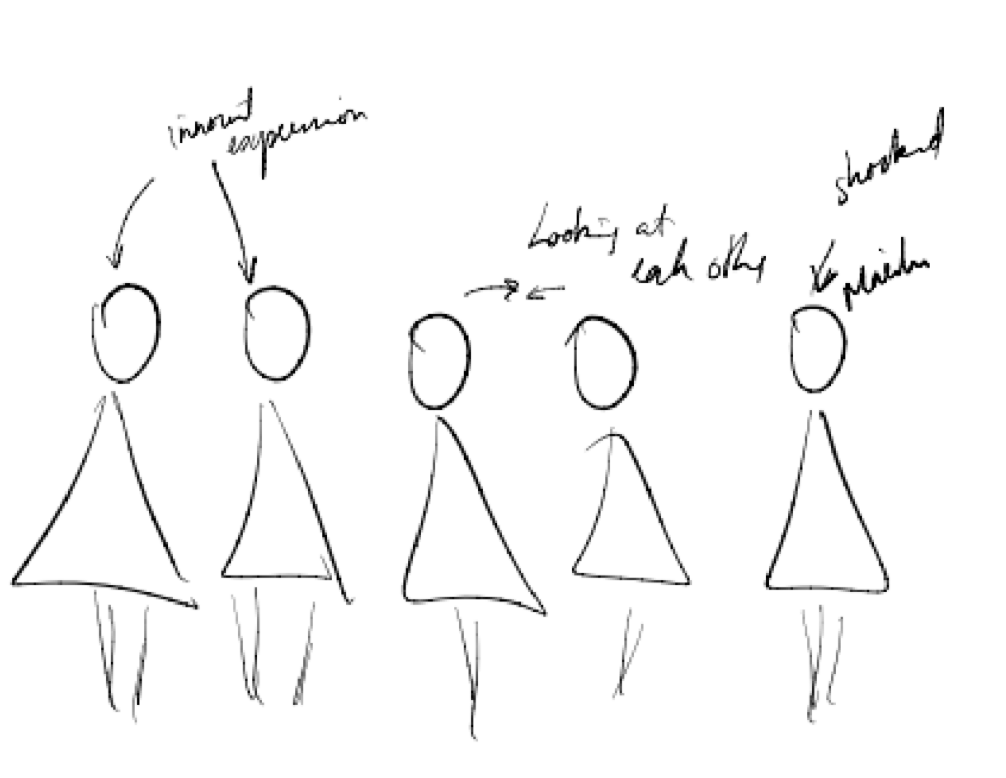 innocent
expression
Looking at
each other
shocked